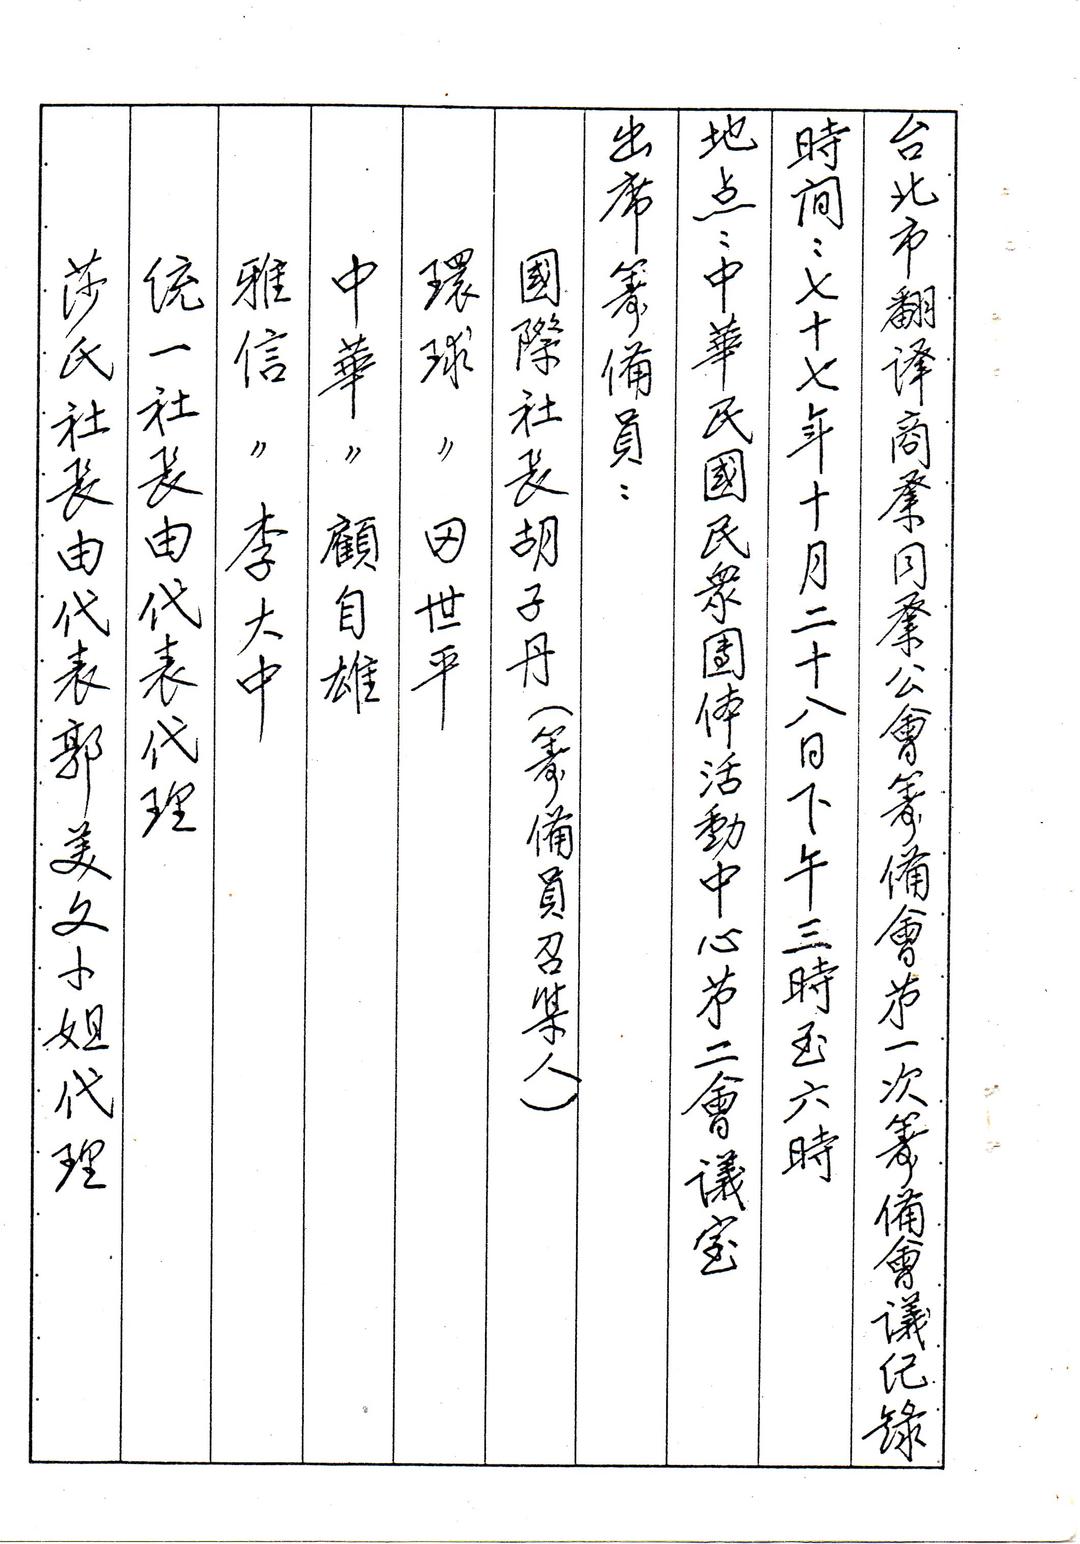 台北市翻译商業同業公會筹備會苐一次筹備會議纪錄
時间：七十七年十月二十八日下午三時至六時
地点：中華民國民眾團体活動中心苐二會議室
出席筹備員：
國際社長胡子丹（筹備員召集人）
環球〃田世平
中華〃顧自雄
雅信〃李大中
统一社長由代表代理
莎氏社長由代表郭美文小姐代理